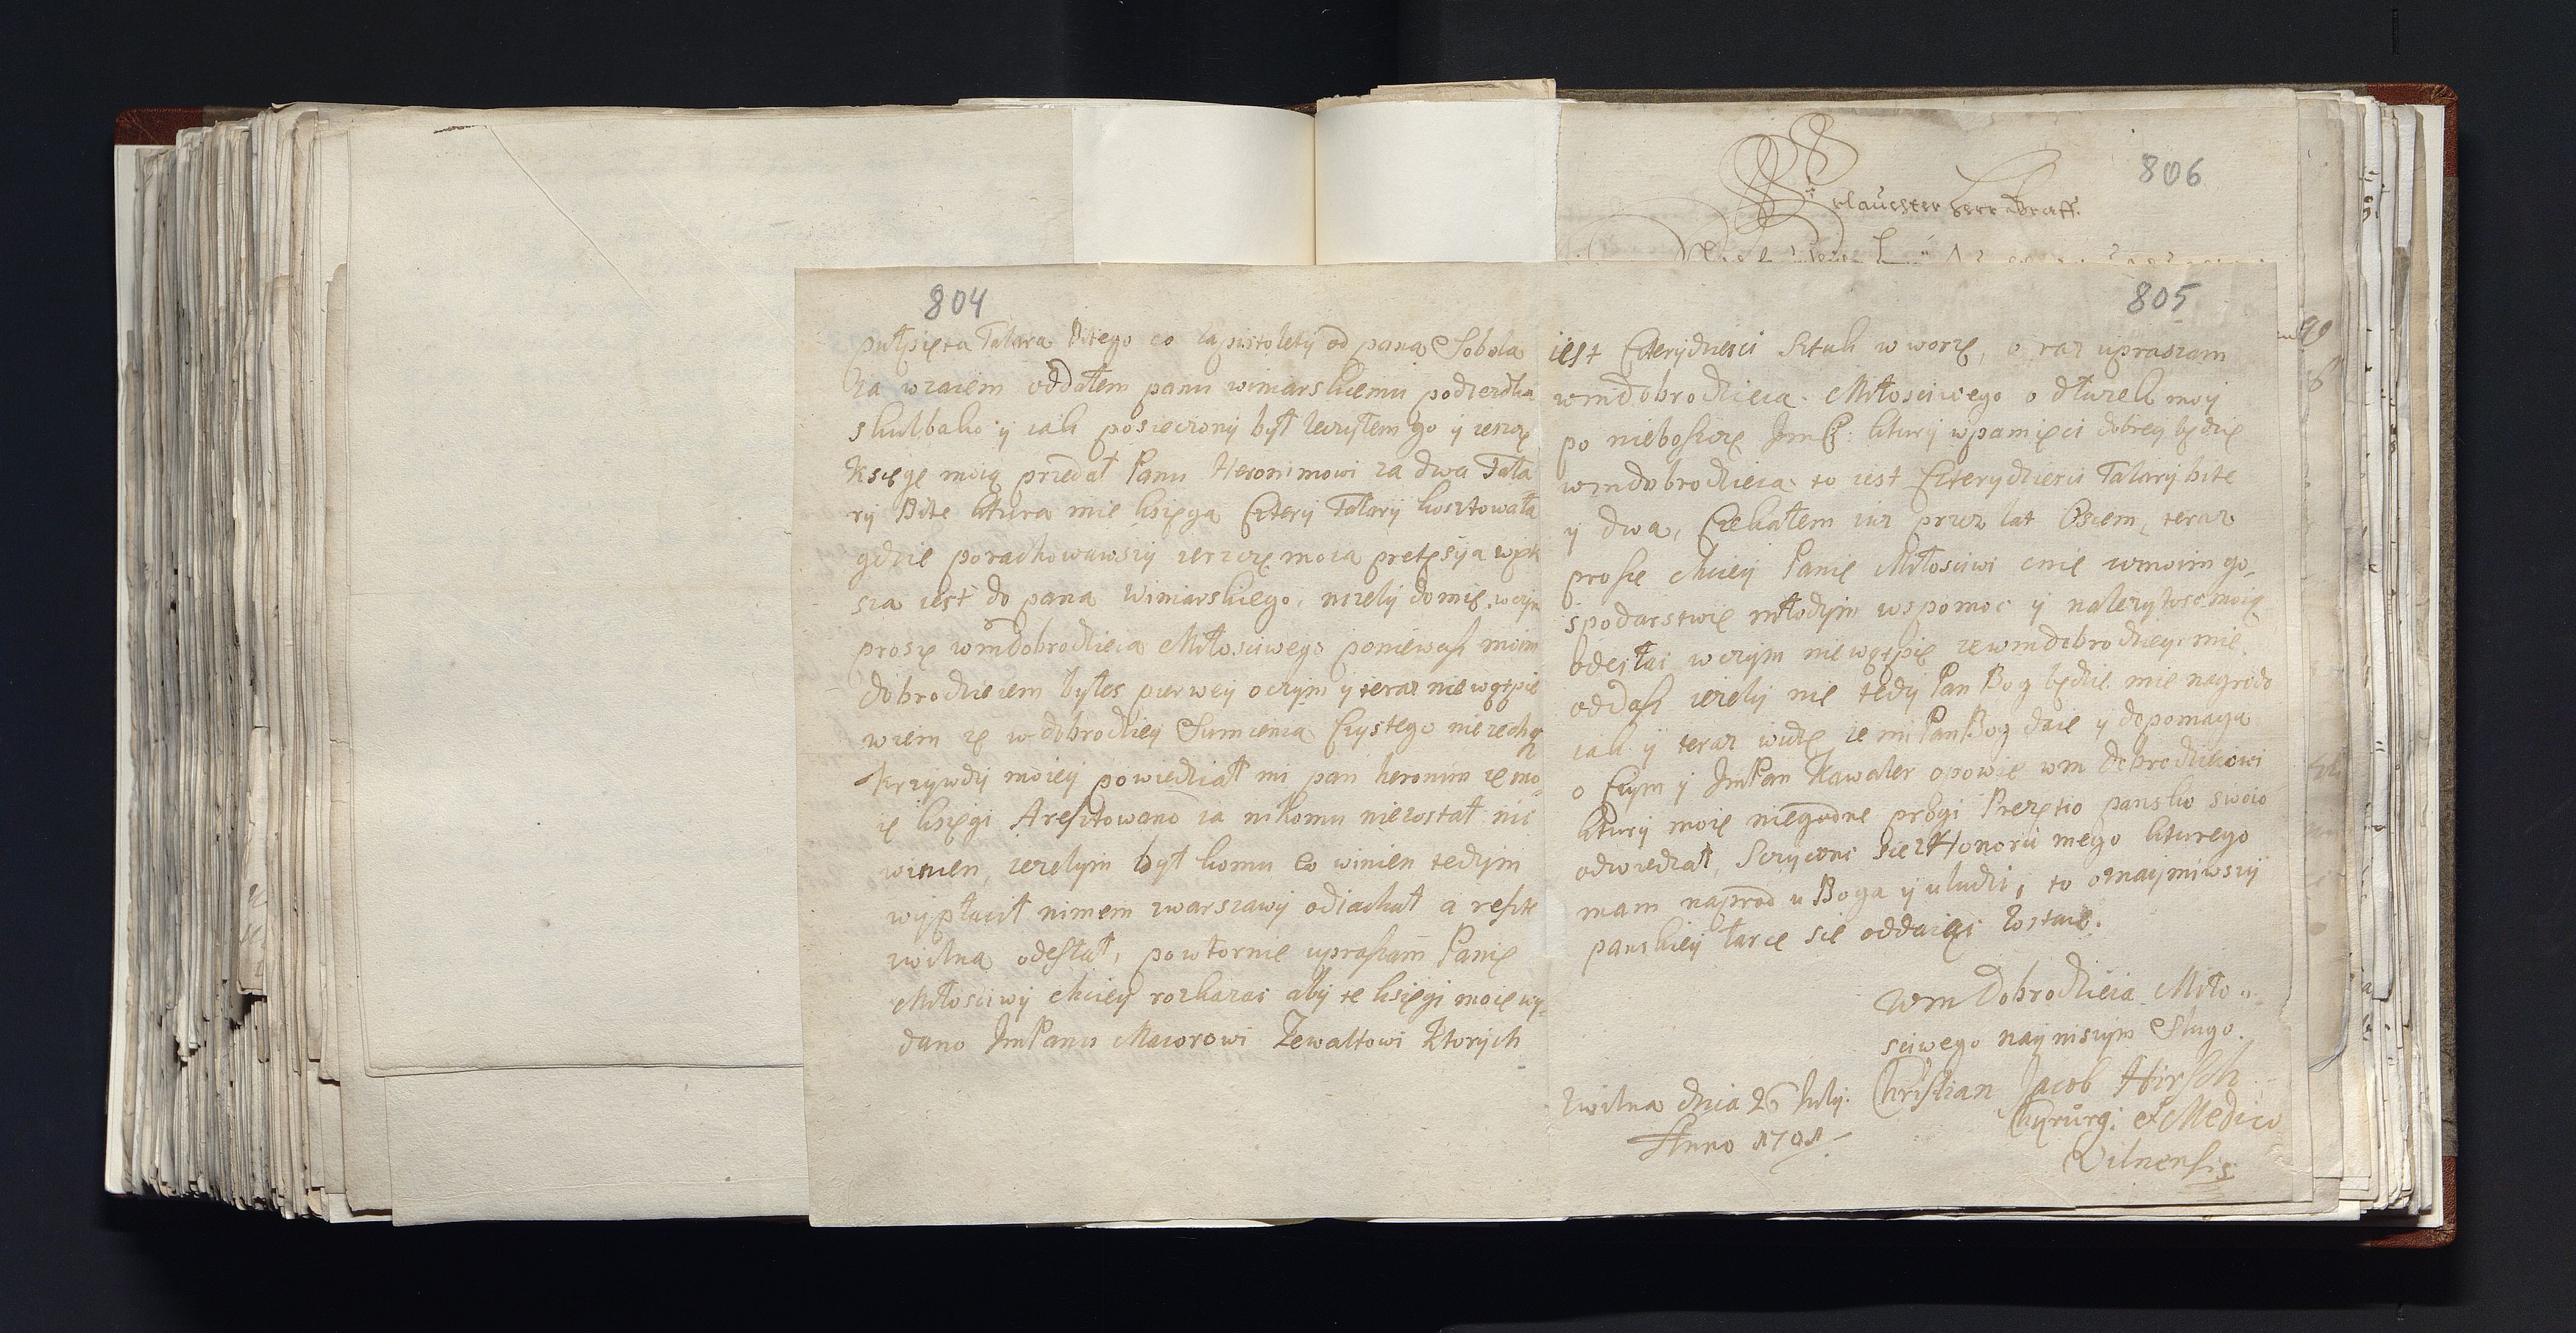 804
pułpięta Talara Bitego co za pistolety od pana Sobola
za wzaiem oddałem panu winiarskiemu podiezdka
s kulbako y iak posieczony był leczyłem go y iescze
Księgę moię przedał Panu Heronimowi za dwa Tala
ry Bite ktura mie księga Cztery Talary kosztowała
gdzie porachowawszy ieszcze moia pretęsyia więk
sza iest do pana Winiarskiego, nizely do mię, w czym
proszę wmdobrodzieia Miłosciwego poniewasz moim
dobrodzieiem byłes pierwey o czym y teraz nie wątpie
wiem ze w dobrodziey Sumienia Czystego nie zechcę
Krzywdy moiey powiedział mi pan heronim ze mo-
ie księgi Aresztowano ia nikomu niezostał nic
winien, iezelym był komu co winien tedym
wypłacił nimem zwarszawy odiachał a reszte
zwilna odesłał, powtornie upraszam Panie
Miłosciwy chciey rozkazac aby te księgi moie wy-
dano JmPanu Maiorowi Zewaltowi Ktorych
805
iest Czterydziesci Sztuk w worze, o raz upraszam
wmdobrodzieia Miłosciwego o dłuzek moy
po nieboszcze Jm ktury w pamięci dobrey będzie
wmdobrodzieia to iest Czterydziesci Talary bite
y dwa, Czekałem iuz przez lat Osiem, teraz
prosze chciey Panie Miłosciwi mie w moim go-
spodarstwie młodym wspomoc y nalezytosc moię
odesłac w czym nie wątpie ze wmdobrodziey mie
oddasz iezely nie tedy Pan Bog będzie mie nagrodo
iak y teraz widze ze mi Pan Bog daie y dopomaga
o Czym y JmPan Kawaler opowie wm dobrodzieiowi
ktury moie niegodne progi Prezętio pansko swoio
odwiedzał, Szczycac sie z Honoru mego kturego
mam naprod u Boga y u ludzi, to oznaymiwszy
panskiey łasce sie oddaiąc zostaie.
wm Dobrodzieia Miło-
sciwego nayniszym Slugo.
Christian Jacob Hirsch
Chyrurg: et Medico
Vilnensis
Zwilna dnia 26 July.
Anno 1701
806
Erlauchter Herr Graff.